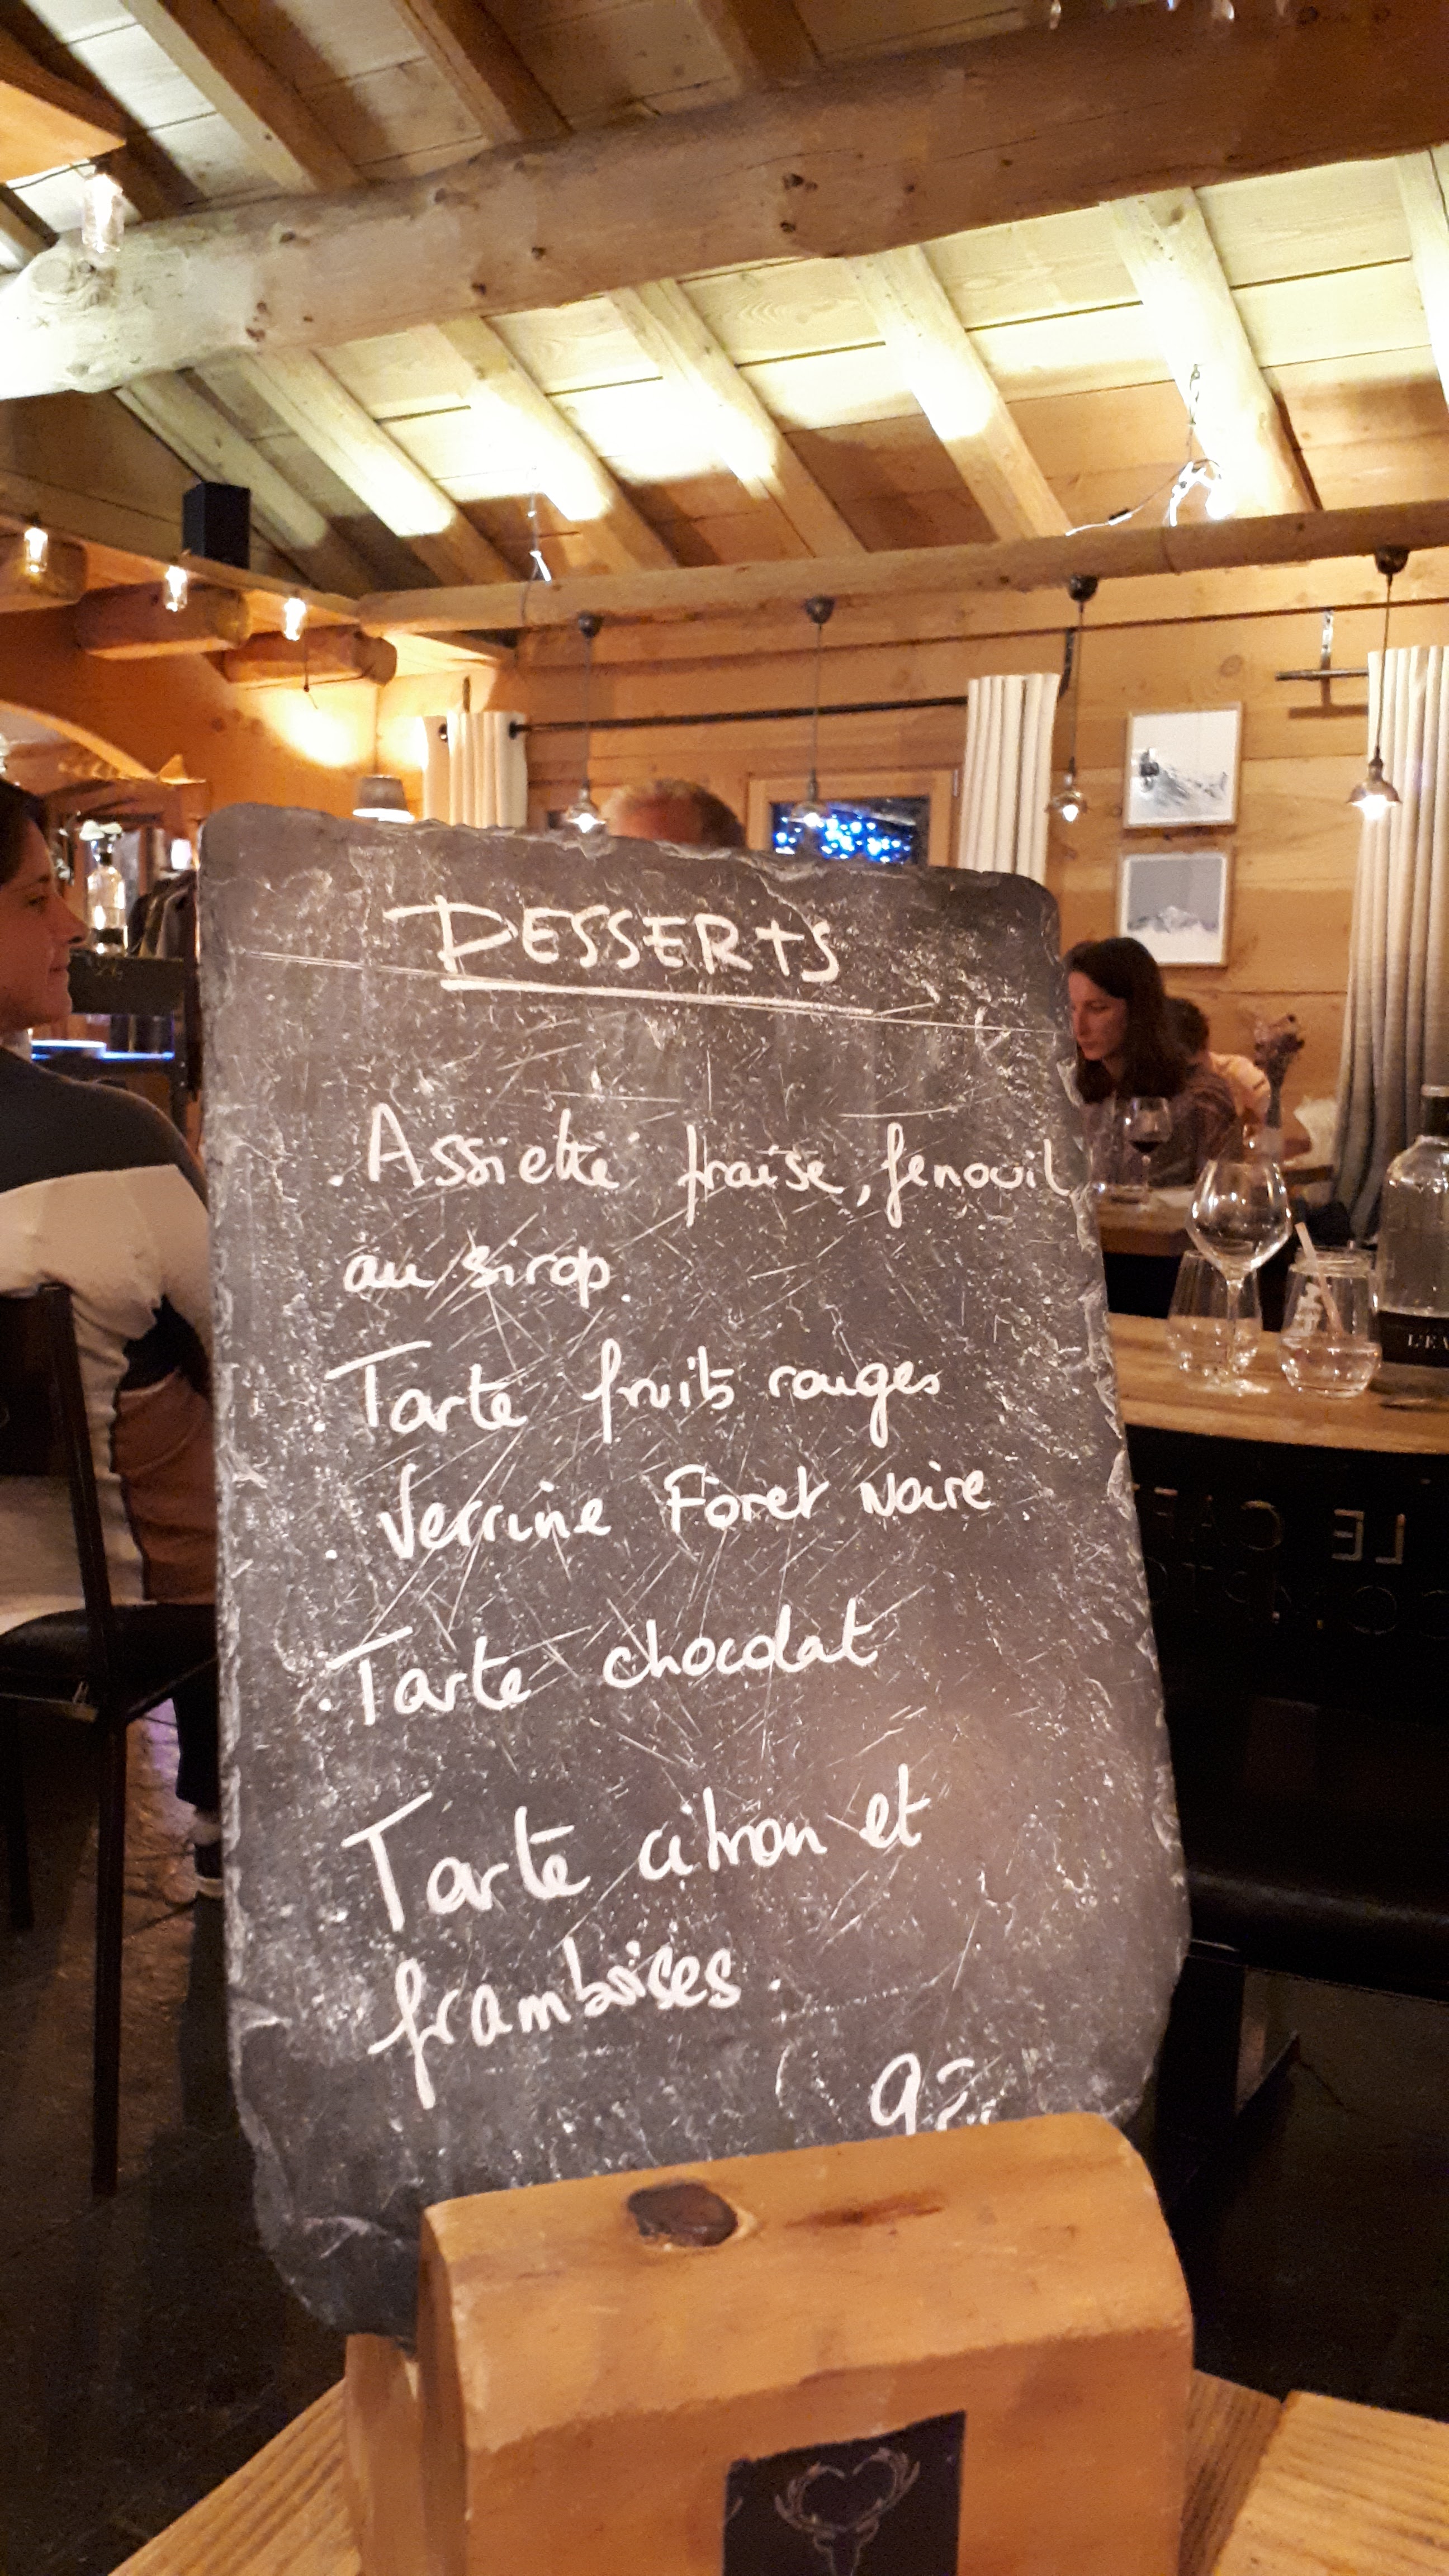 DESSERTS
. Assiette fraise, fenouil
au sirop.
. Tarte fruits rouges
. Verrine Foret Noire
. Tarte chocolat
Tarte citron et
framboises.
LE CAF
L'EA